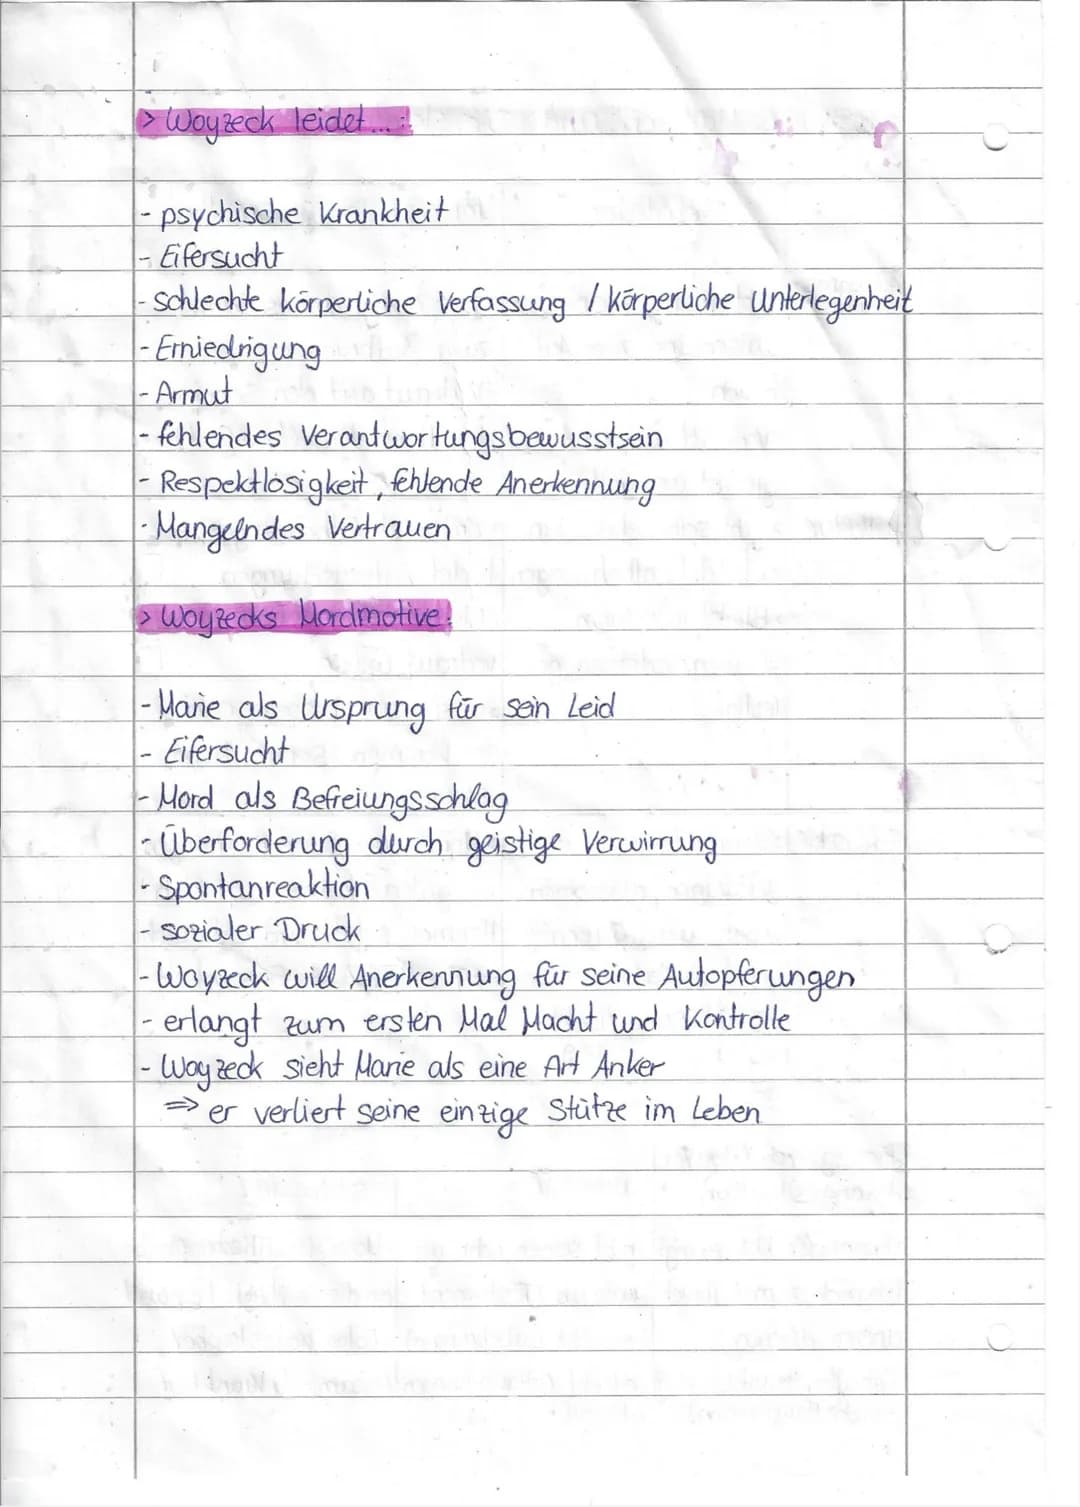 > Woyzeck leidet...:
- psychische Krankheit
- Eifersucht
- schlechte körperliche Verfassung / körperliche Unterlegenheit
- Erniedrigung
- Armut
- fehlendes Verantwortungsbewusstsein
- Respektlosigkeit, fehlende Anerkennung
- Mangelndes Vertrauen
> Woyzecks Mordmotive:
- Marie als Ursprung für sein Leid
- Eifersucht
- Mord als Befreiungsschlag
- Überforderung durch geistige Verwirrung
- Spontanreaktion
- sozialer Druck
- Woyzeck will Anerkennung für seine Aufopferungen
- erlangt zum ersten Mal Macht und Kontrolle
- Woyzeck sieht Marie als eine Art Anker
⇒ er verliert seine einzige Stütze im Leben